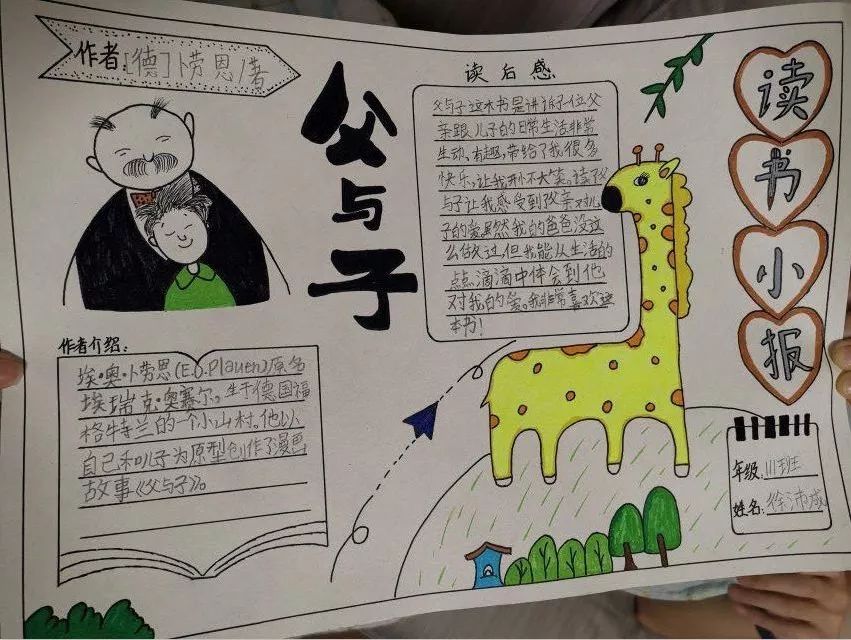 作者:[德]卜劳恩/著
父与子
读后感
父与子这本书是讲诉了一位父
亲跟儿子的日常生活非常
生动,有趣,带给了我很多
快乐,让我
与子让我感受到父亲对儿
子的爱虽然我的爸爸没这
么做过,但我能从生活的
点点滴滴中体会到他
对我的爱。我非常喜欢这
本书!
读书小报
作者介绍:
埃·奥·卜劳恩(E.o.Plauen)原名
埃·瑞克·奥赛尔。生于德国福
格牛寺兰的一个小山村。他以
自己和儿子为原型创作了漫画
故事《父与子》。
年级:
姓名:徐沛